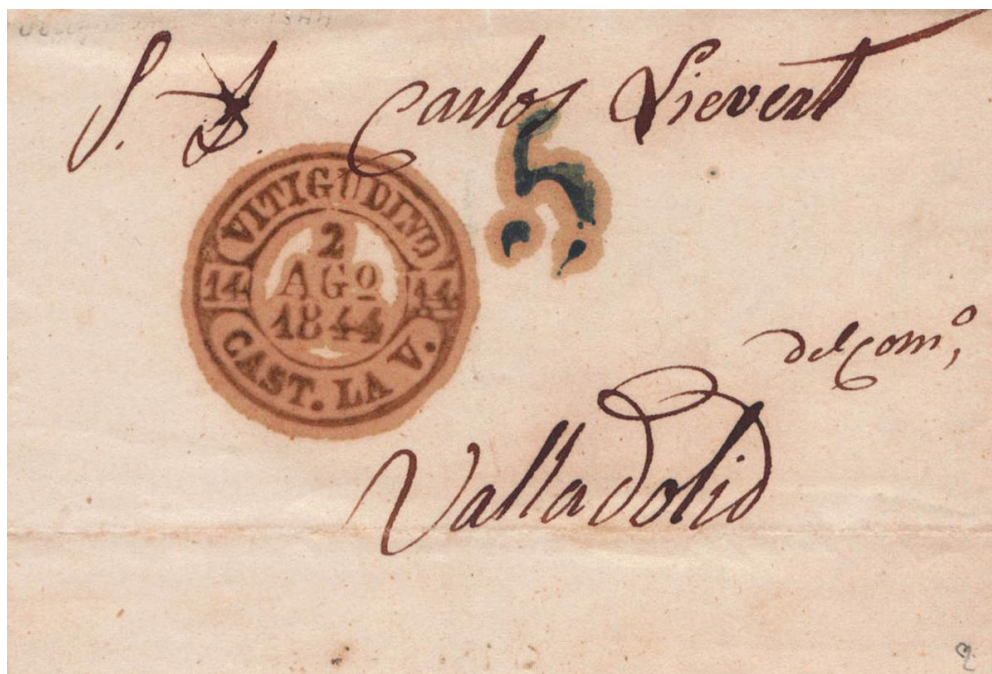 S. D. Carlos Sievert
5
VITIGUDINO
2
14 AGO 14
1844
CAST. LA V.
del Comº,
Valladolid